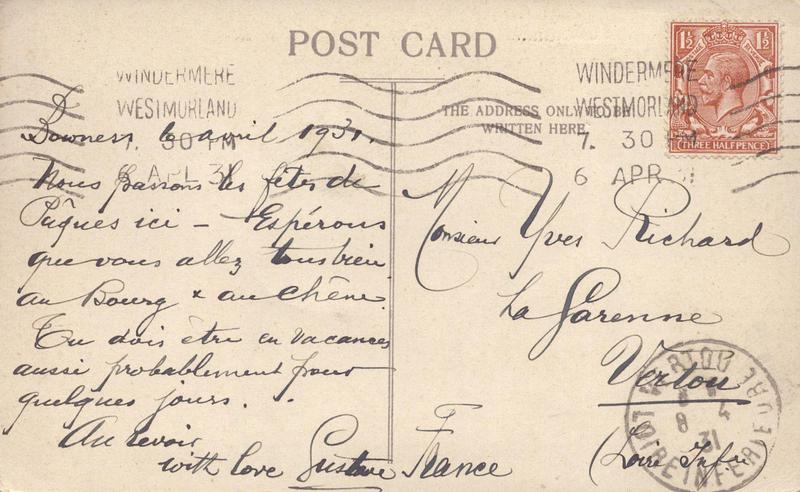 POST CARD
WINDERMERE
WESTMORLAND
7. 30 PM
6 APR 31
WINDERMERE
WESTMORLAND
7. 30 PM
6 APR
1½ 1½
THREE HALFPENCE
THE ADDRESS ONLY TO BE
WRITTEN HERE.
Bowness 6 avril 1931.
Nous passons les fêtes de
Pâques ici – Espérons
que vous allez tous bien
au Bourg & au Chêne.
Tu dois être en vacances
aussi probablement pour
quelques jours.
Au revoir
with love Gustave
Monsieur Yves Richard
La Garenne
Vertou
(Loire Infre)
France
VERTOU
LOIRE INFERIEURE
8 4
31